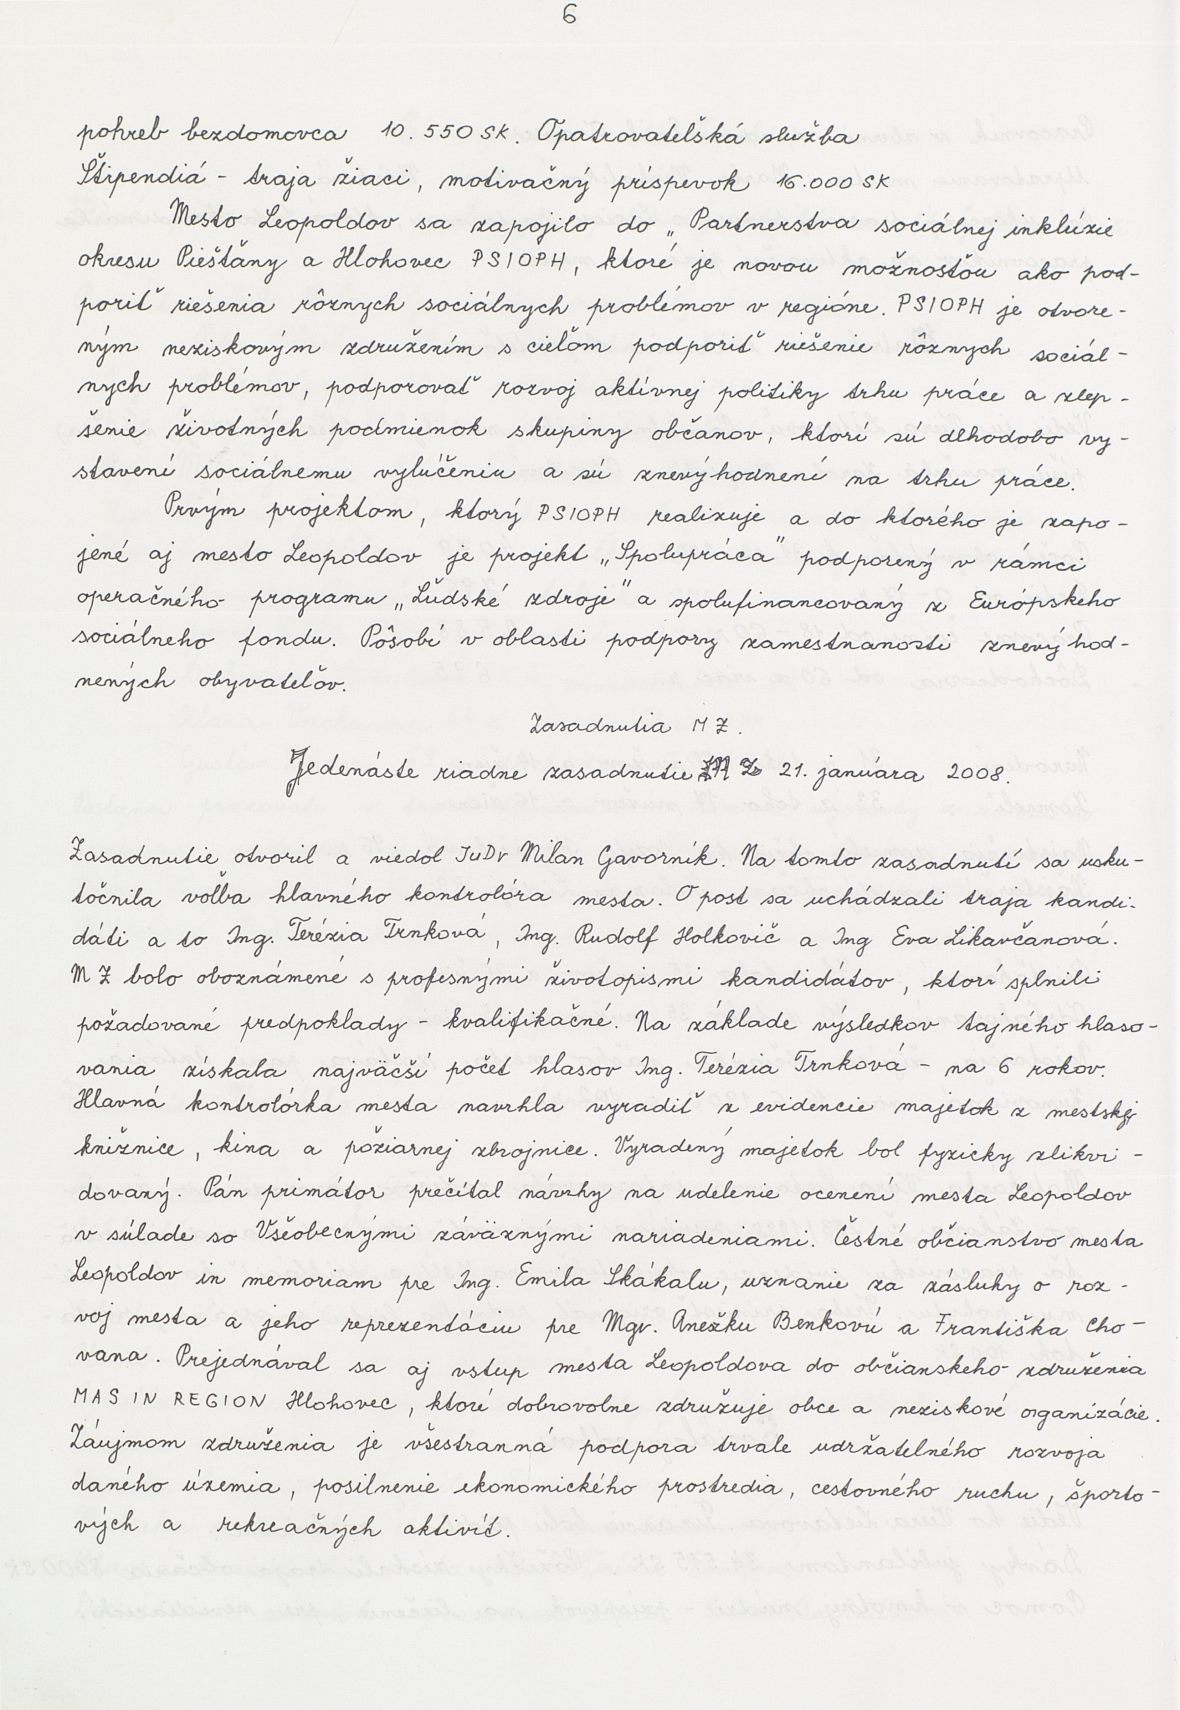 6
pohreb bezdomovca 10.550 SK. Opatrovateľská služba
Štipendiá - traja žiaci, motivačný príspevok 16.000 SK
Mesto Leopoldov sa zapojilo do „Partnerstva sociálnej inklúzie
okresu Piešťány a Hlohovec PSIOPH, ktoré je novou možnosťou ako pod-
poriť riešenia rôznych sociálnych problémov v regióne. PSIOPH je otvore-
ným neziskovým združením s cieľom podporiť riešenie rôznych sociál-
nych problémov, podporovať rozvoj aktívnej politiky trhu práce a zlep-
šenie životných podmienok skupiny občanov, ktorí sú dlhodobo vy-
stavení sociálnemu vylúčeniu a sú znevýhodnení na trhu práce.
Prvým projektom, ktorý PSIOPH realizuje a do ktorého je zapo-
jené aj mesto Leopoldov je projekt „Spolupráca" podporený v rámci
operačného programu „Ľudské zdroje" a spolufinancovaný z Európskeho
sociálneho fondu. Pôsobí v oblasti podpory zamestnanosti znevýhod-
nených obyvateľov.
Zasadnutia MZ.
Jedenáste riadne zasadnutie MZ 21. januára 2008.
Zasadnutie otvoril a viedol JuDr Milan Gavorník. Na tomto zasadnutí sa usku-
točnila voľba hlavného kontrolóra mesta. O post sa uchádzali traja kandi-
dáti a to Ing. Terézia Trnková, Ing. Rudolf Holkovič a Ing Eva Likavčanová.
MZ bolo oboznámené s profesnými životopismi kandidátov, ktorí splnili
požadované predpoklady - kvalifikačné. Na základe výsledkov tajného hlaso-
vania získala najväčší počet hlasov Ing. Terézia Trnková - na 6 rokov.
Hlavná kontrolórka mesta navrhla vyradiť z evidencie majetok z mestskej
knižnice, kina a požiarnej zbrojnice. Vyradený majetok bol fyzicky zlikvi-
dovaný. Pán primátor prečítal návrhy na udelenie ocenení mesta Leopoldov
v súlade so Všeobecnými záväznými nariadeniami. Čestné občianstvo mesta
Leopoldov in memoriam pre Ing. Emila Skákalu, uznanie za zásluhy o roz-
voj mesta a jeho reprezentáciu pre Mgr. Anežku Benkovú a Františka Cho-
vana. Prejednával sa aj vstup mesta Leopoldova do občianskeho združenia
MAS IN REGION Hlohovec, ktoré dobrovolne združuje obce a neziskové organizácie.
Záujmom združenia je všestranná podpora trvale udržatelného rozvoja
daného územia, posilnenie ekonomického prostredia, cestovného ruchu, športo-
vých a rekreačných aktivít.